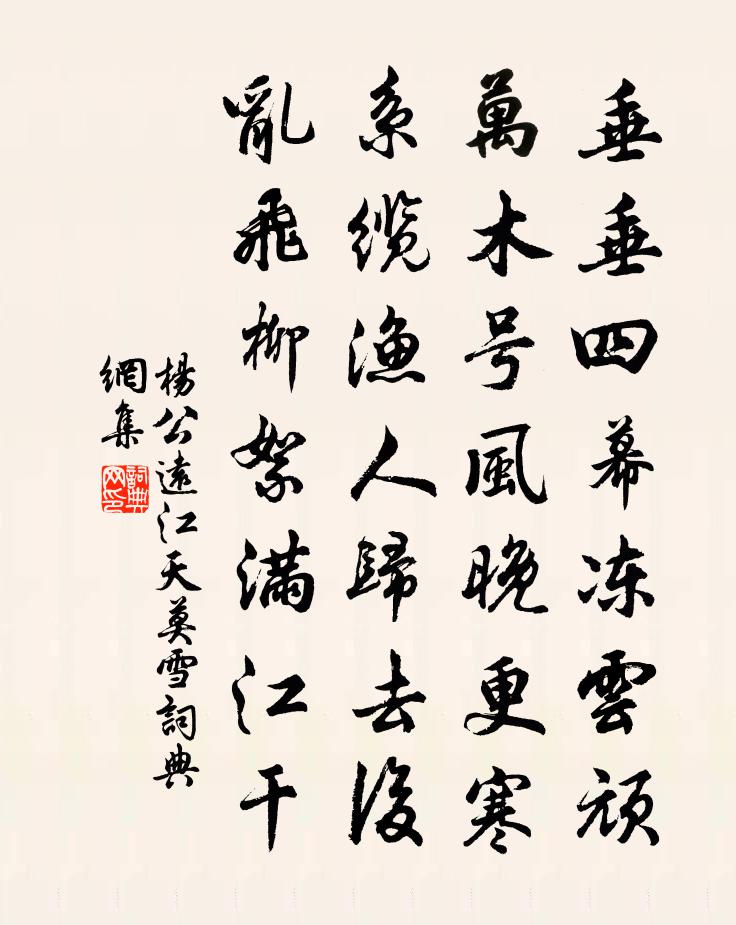 垂垂四幕冻雲頑
萬木号風晚更寒
系缆漁人歸去後
亂飛柳絮滿江干
楊公遠江天莫雪詞典
網集
詞典网印